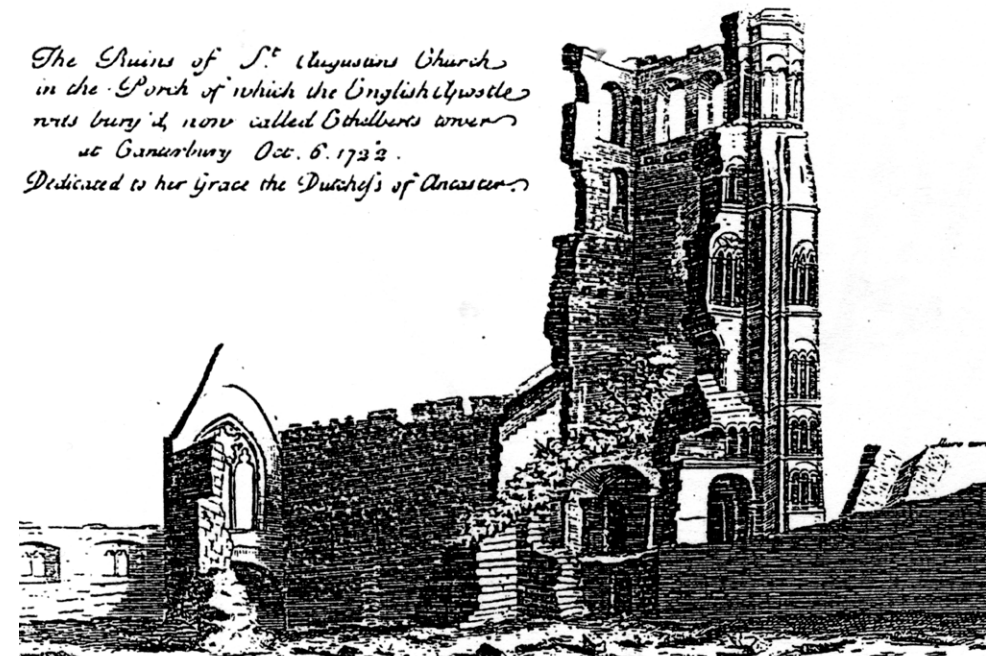 The Ruins of S.t Augustins Church
in the Porch of which the English Apostle
was bury'd, now called Ethelberts tower
at Canterbury Oct. 6. 1722.
Dedicated to her Grace the Dutchess of Ancaster.